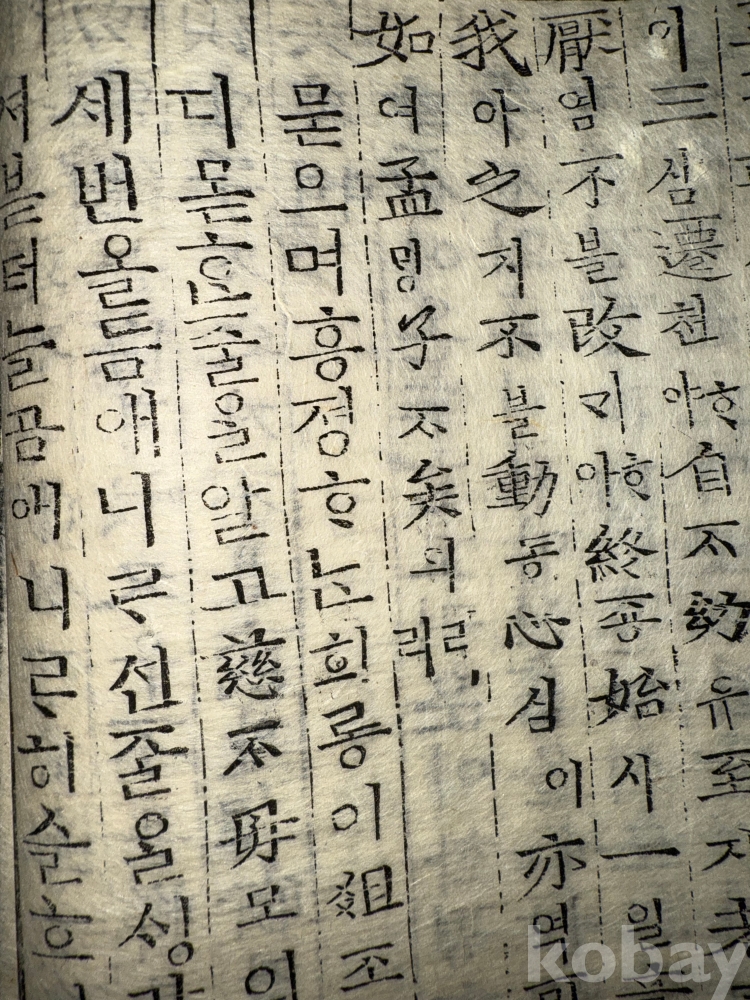 이三삼遷쳔ᄒᆞ야自ᄌᆞ幼유至지
厭염不블改기ᄒᆞ야終죵始시一일
我아之지不블動동心심이亦역
如여孟밍子ᄌᆞ矣의리라
묻으며흥졍ᄒᆞᄂᆞᆫ희롱이俎조
디몯ᄒᆞᆫ줄을알고慈ᄌᆞ母모이
세번올믐애니ᄅᆞ션줄올싱
터늘곰애니ᄅᆞ히슌ᄒᆞ
kobay